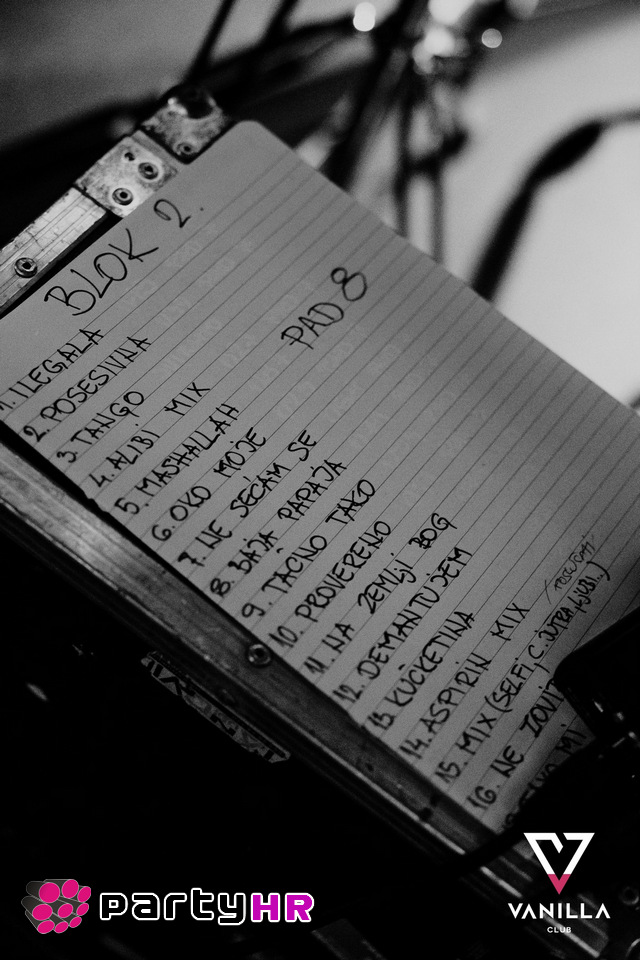 BLOK 2.
PAD 8
1. ILEGALA
2. POSESIVNA
3. TANGO
4. ALIBI MIX
5. MASHALLAH
6. OKO MOJE
7. NE SEĆAM SE
8. BAJA PAPAJA
9. TAČNO TAKO
10. PROVERENO
11. NA ZEMLJI BOG
12. DEMANTUJEM
13. KUČKETINA
14. ASPIRIN MIX
15. MIX (SELFI, C. JUTRA, LJUBI..)
16. NE ZOVI
MI
partyHR
VANILLA
CLUB